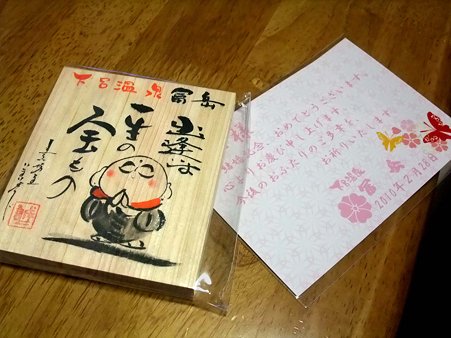 下呂温泉 冨岳
出逢いは
一生の
宝もの
様
おめでとうございます。
心よりお慶び申し上げます
今後のおふたりのご多幸を、
お祈りいたします
下呂温泉
冨岳
2010年2月26日